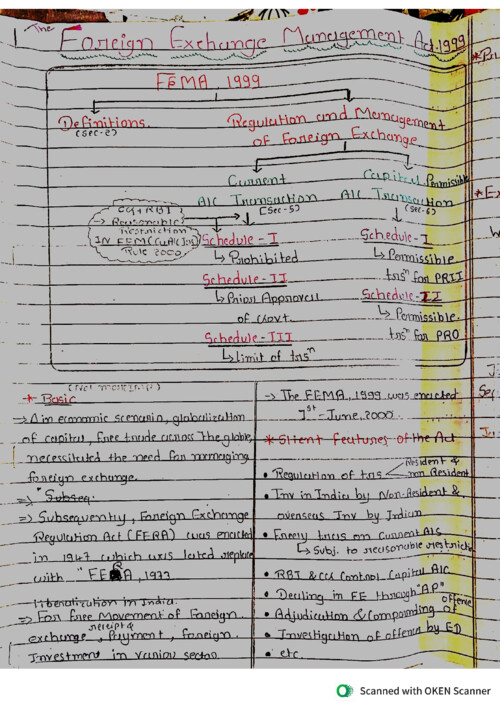 The Foreign Exchange Management Act, 1999
FEMA, 1999
Definitions.
(Sec-2)
Regulation and Management
of Foreign Exchange
Current
A/C Transaction
(Sec-5)
Capital Permissible
A/C Transaction
(Sec-6)
CG+RBI
→ Reasonable
restriction
IN FEM(CuA/c Tns)
Rule 2000
Schedule-I
↳ Prohibited
Schedule-II
↳ Prior Approval
of Govt.
Schedule-III
↳ limit of tnsⁿ
Schedule-I
↳ Permissible
tnsⁿ for PRII
Schedule-II
↳ Permissible.
tnsⁿ for PRO
* Basic
→ As in economic scenario, globalization
of capital, free trade across the globe,
necessitated the need for managing
foreign exchange.
=> "Subseq.
=> Subsequently, Foreign Exchange
Regulation Act (FERA) was enacted
in 1947 which was lated replace
with "FERA, 1973
Liberalization in India.
=> For free Movement of Foreign
exchange, receipt & Payment, foreign
Investment in various sector.
→ The FEMA, 1999 was enacted
1st-June, 2000.
* Slient Features of the Act
• Regulation of tns < Resident &
non Resident
• Inv in India by Non-Resident &
overseas Inv by Indian
• Every tnscs on Current A/S
↳ Subj. to reasonable restrict
• RBI & CG Control Capital A/C
• Dealing in FE through "AP"
• Adjudication & Compounding of offence
• Investigation of offence by ED
• etc.
Scanned with OKEN Scanner